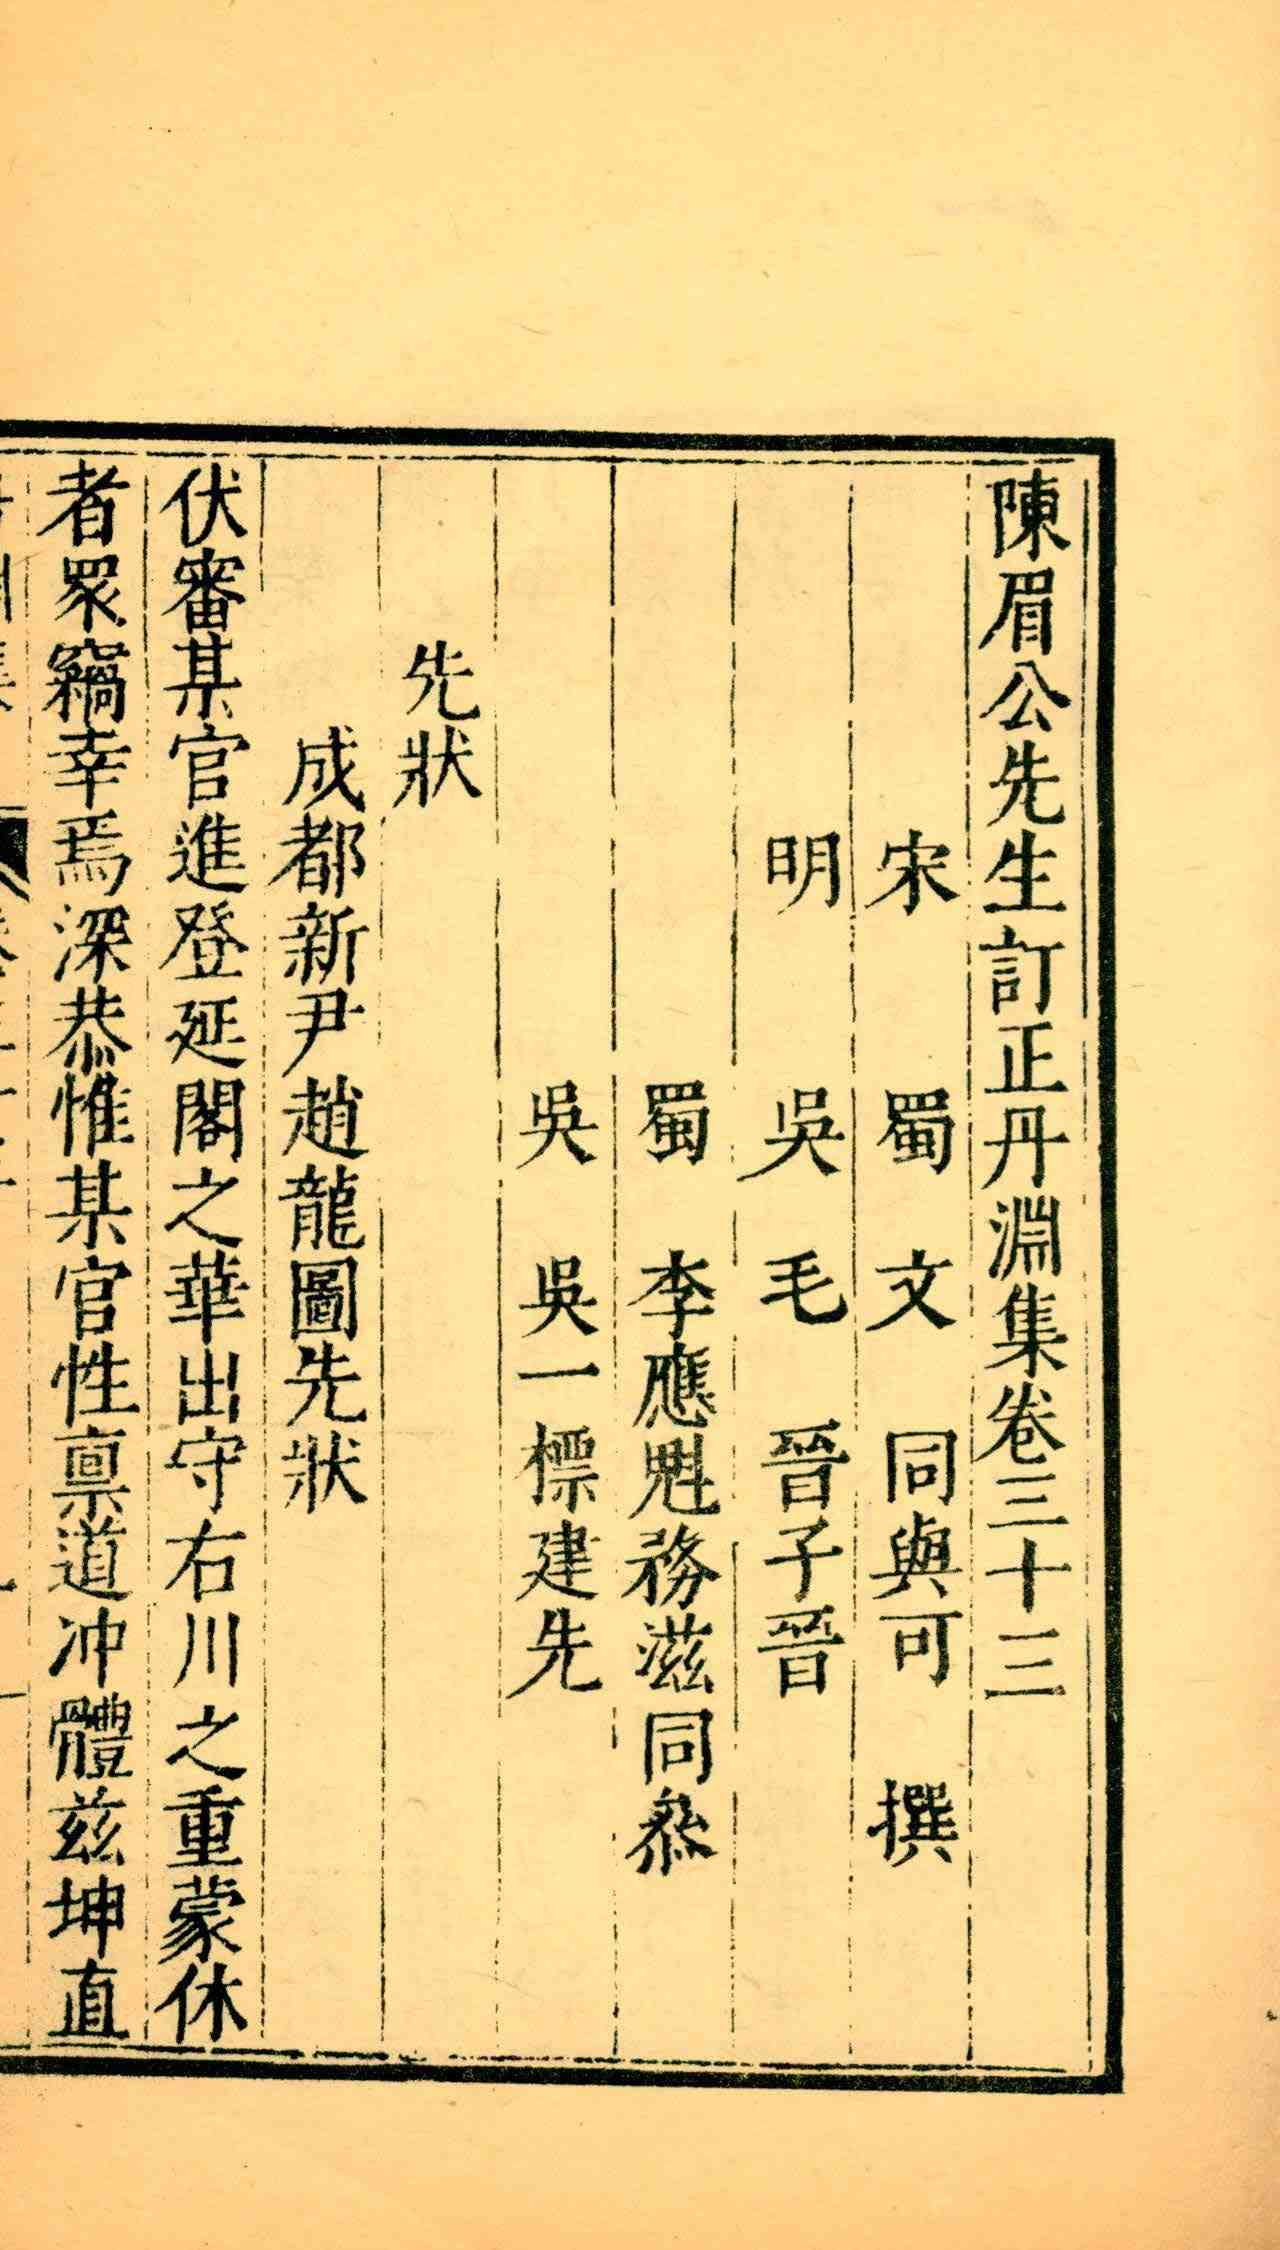 陳眉公先生訂正丹淵集卷三十三
宋 蜀 文 同與可 撰
明 吳 毛 晉子晉
蜀 李應魁務滋同叅
吳 吳一標建先
先狀
成都新尹趙龍圖先狀
伏審某官進登延閣之華出守右川之重蒙休
者眾竊幸焉深恭惟某官性禀道冲體兹坤直